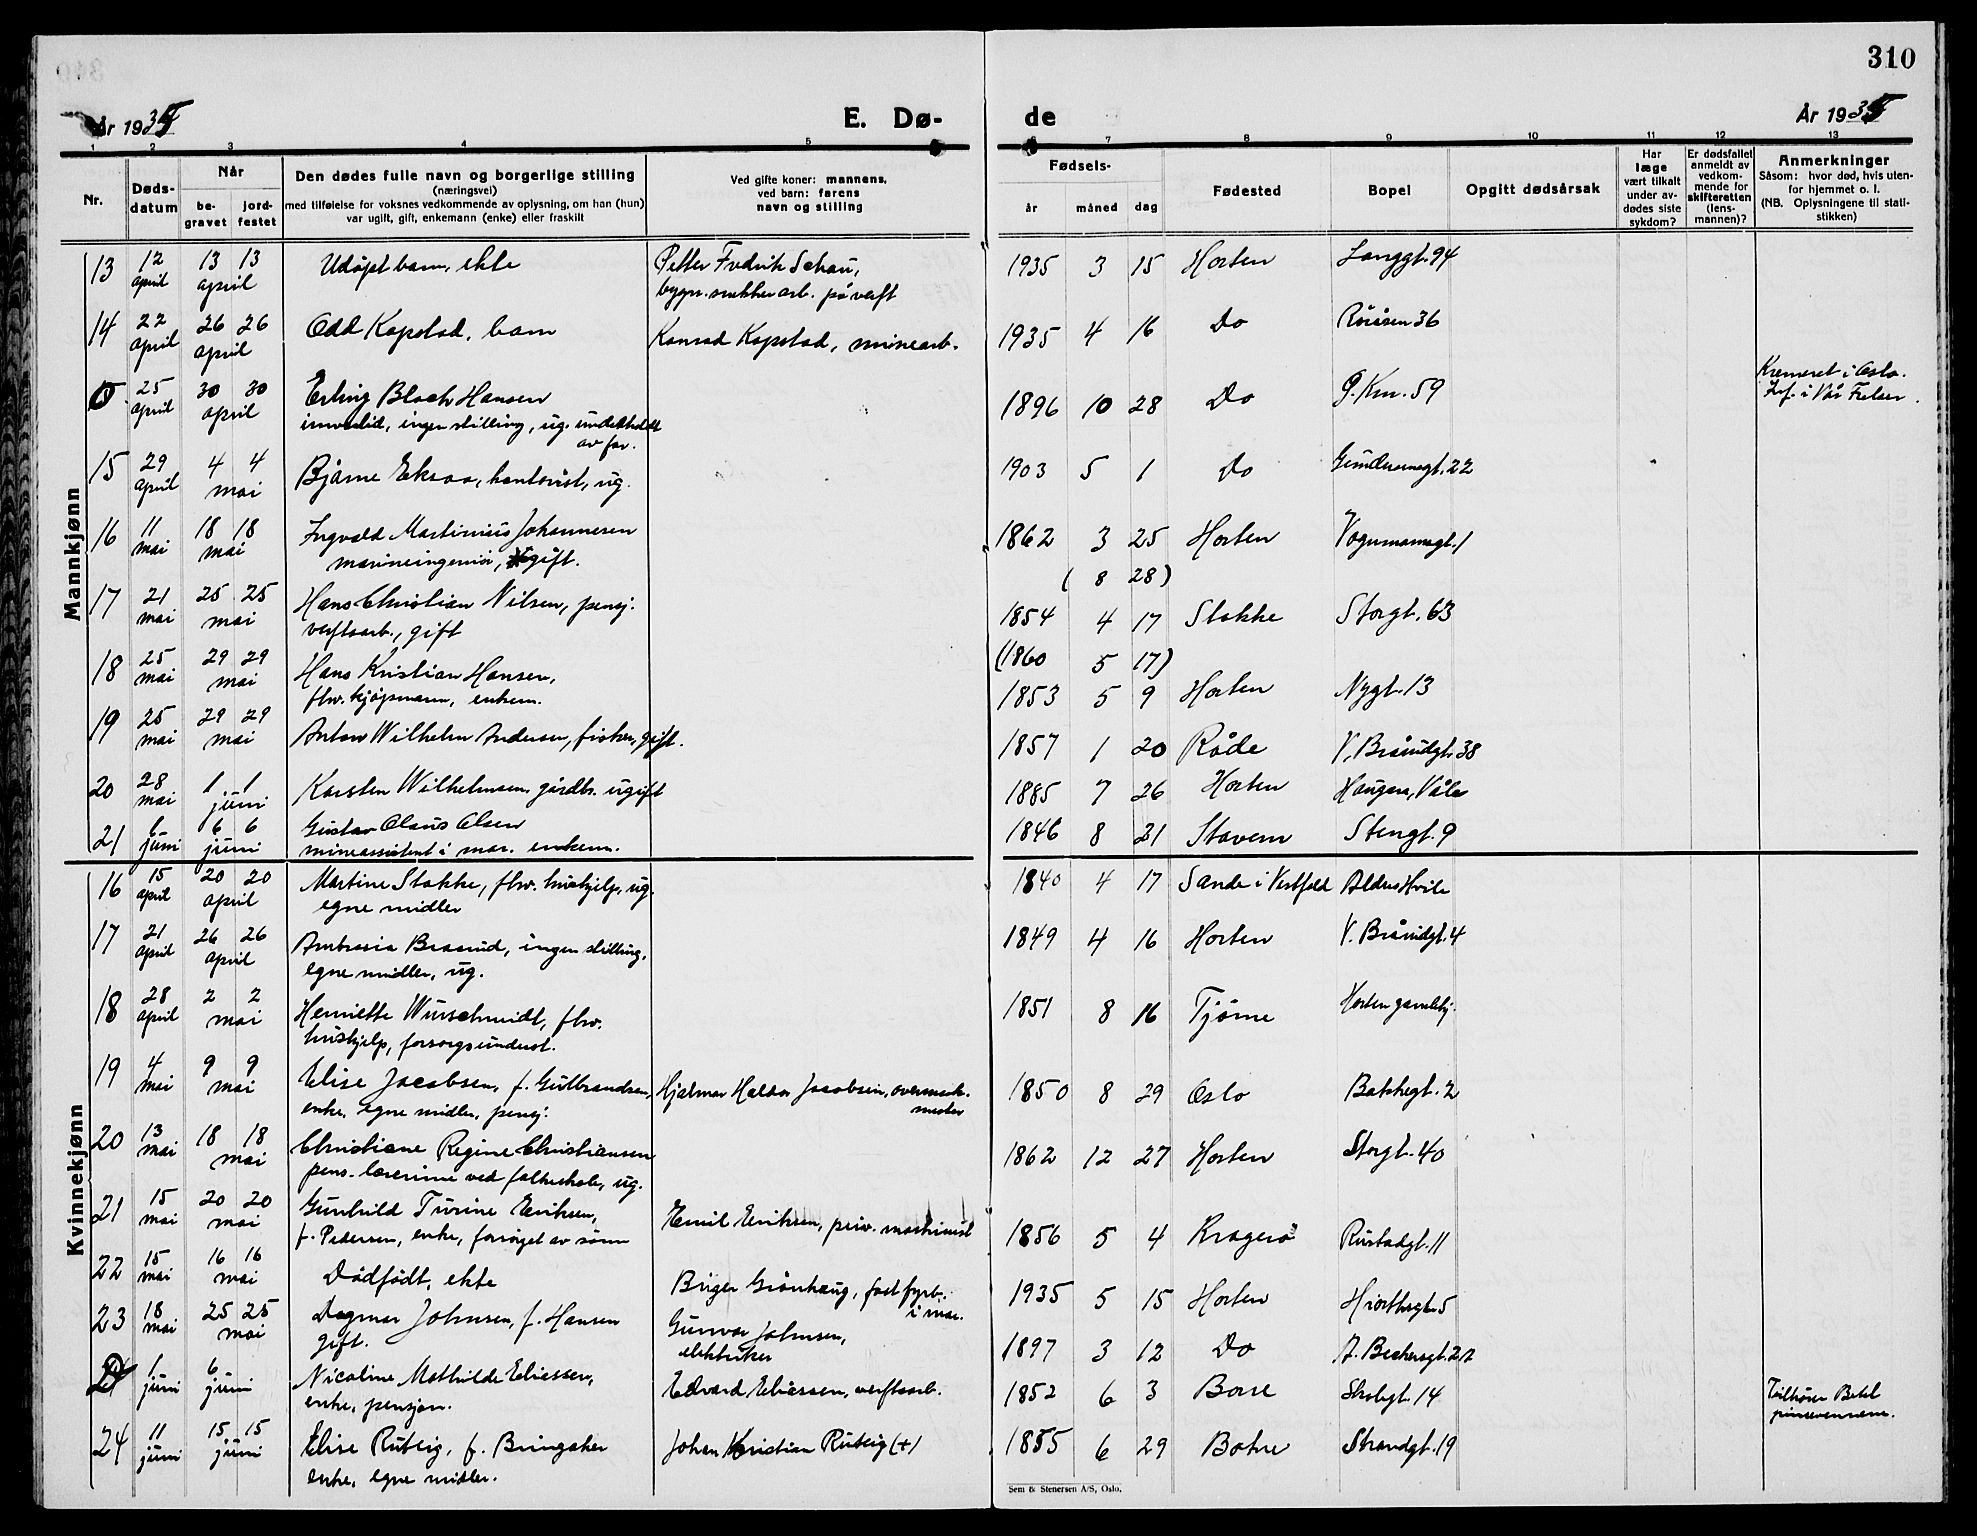 310
År 1935
E. Dø-
de
År 1935
1 2 3 4 5 6 7 8 9 10 11 12 13
Nr.
Døds-
datum
Når
be-
gravet
jord-
festet
Den dødes fulle navn og borgerlige stilling
(næringsvei)
med tilføielse for voksnes vedkommende av oplysning, om han (hun)
var ugift, gift, enkemann (enke) eller fraskilt
Ved gifte koner: mannens,
ved barn: farens
navn og stilling
Fødsels-
år måned dag
Fødested
Bopel
Opgitt dødsårsak
Har
læge
vært tilkalt
under av-
dødes siste
sykdom?
Er dødsfallet
anmeldt av
vedkom-
mende for
skifteretten
(lens-
mannen)?
Anmerkninger
Såsom: hvor død, hvis uten-
for hjemmet o. l.
(NB. Oplysningene til stati-
stikken)
Mannkjønn
13 12 13 13 Udøpt barn, ekte Petter Fredrik Schau, 1935 3 15 Horten Langgt. 94
april april bygn.snekkerarb. på verft
14 22 26 26 Odd Kopstad, barn Konrad Kopstad, minearb. 1935 4 16 Do Røråsen 36
april april
25 30 30 Erling Bloch Hansen 1896 10 28 Do 59 Kremeret i Oslo.
april april invalid, ingen stilling, ug. underholdt i Vår Frelser
av far.
15 29 4 4 Bjarne Eksaa, kontorist, ug. 1903 5 1 Do 22
april mai
16 11 18 18 Ingvald Martinius Johannesen 1862 3 25 Horten Vognmannsgt. 1
mai mai marineingeniør, gift. (8 28)
17 21 25 25 Hans Christian Nilsen, pensj. 1854 4 17 Stokke Storgt. 63
mai mai verftsarb., gift (1860 5 17)
18 25 29 29 Hans Kristian Hansen, 1853 5 9 Horten Nygt. 13
mai mai fhv. kjøpmann, enkem.
19 25 29 29 Anton Wilhelm Andersen, fisker, gift. 1857 1 20 Råde V. Brårudgt. 38
mai mai
20 28 1 1 Karsten Wilhelmsen, gårdbr. ugift 1885 7 26 Horten Haugen, Våle
mai juni
21 1 6 6 Gustav Olaus Olsen 1846 8 21 Stavern Stengt. 9
juni juni mineassistent i mar. enkem.
Kvinnekjønn
16 15 20 20 Martine Stokke, fhv. hushjelp, ug. 1840 4 17 Sande i Vestfold Alders Hvile
april april egne midler
17 21 26 26 Ambrosia Braarud, ingen stilling, 1849 4 16 Horten V. Bråridgt. 4
april april egne midler, ug.
18 28 2 2 Henriette Würschmidt, fhv. 1851 8 16 Tjøme Horten gamlehj.
april mai hushjelp, forsorgsunderst.
19 4 9 9 Elise Jacobsen, f. Gulbrandsen, Hjalmar Haldor Jacobsen, overmask. 1850 8 29 Oslo Bakkegt. 2
mai mai enke, egne midler, pensj. mester
20 13 18 18 Christiane Regine Christiansen 1862 12 27 Horten Storgt. 40
mai mai pens. lærerinne ved folkeskole, ug.
21 15 20 20 Gunhild Turine Eriksen, Emil Eriksen, priv. maskinist 1856 5 4 Kragerø Rustadgt. 11
mai mai f. Pedersen, enke, forsørget av sønn
22 15 16 16 Dødfødt, ekte Birger Grønhaug, fast fyrb. 1935 5 15 Horten Hjorthsgt. 5
mai mai i mar.
23 18 25 25 Dagmar Johnsen, f. Hansen Gunvar Johnsen, 1897 3 12 Do A. Beckersgt. 22
mai mai gift. elektriker
1 6 Nicoline Mathilde Eliessen, Edvard Eliessen, verftsarb. 1852 6 3 Borre Skoligt. 14 Tilhører Betel
juni juni enke, pensjon. pinsevennene.
24 11 15 15 Elise Rutlig, f. Bringaker Johan Kristian Rutlig (+) 1855 6 29 Botne Strandgt. 19
juni juni enke, egne midler.
Sem & Stenersen A/S, Oslo.